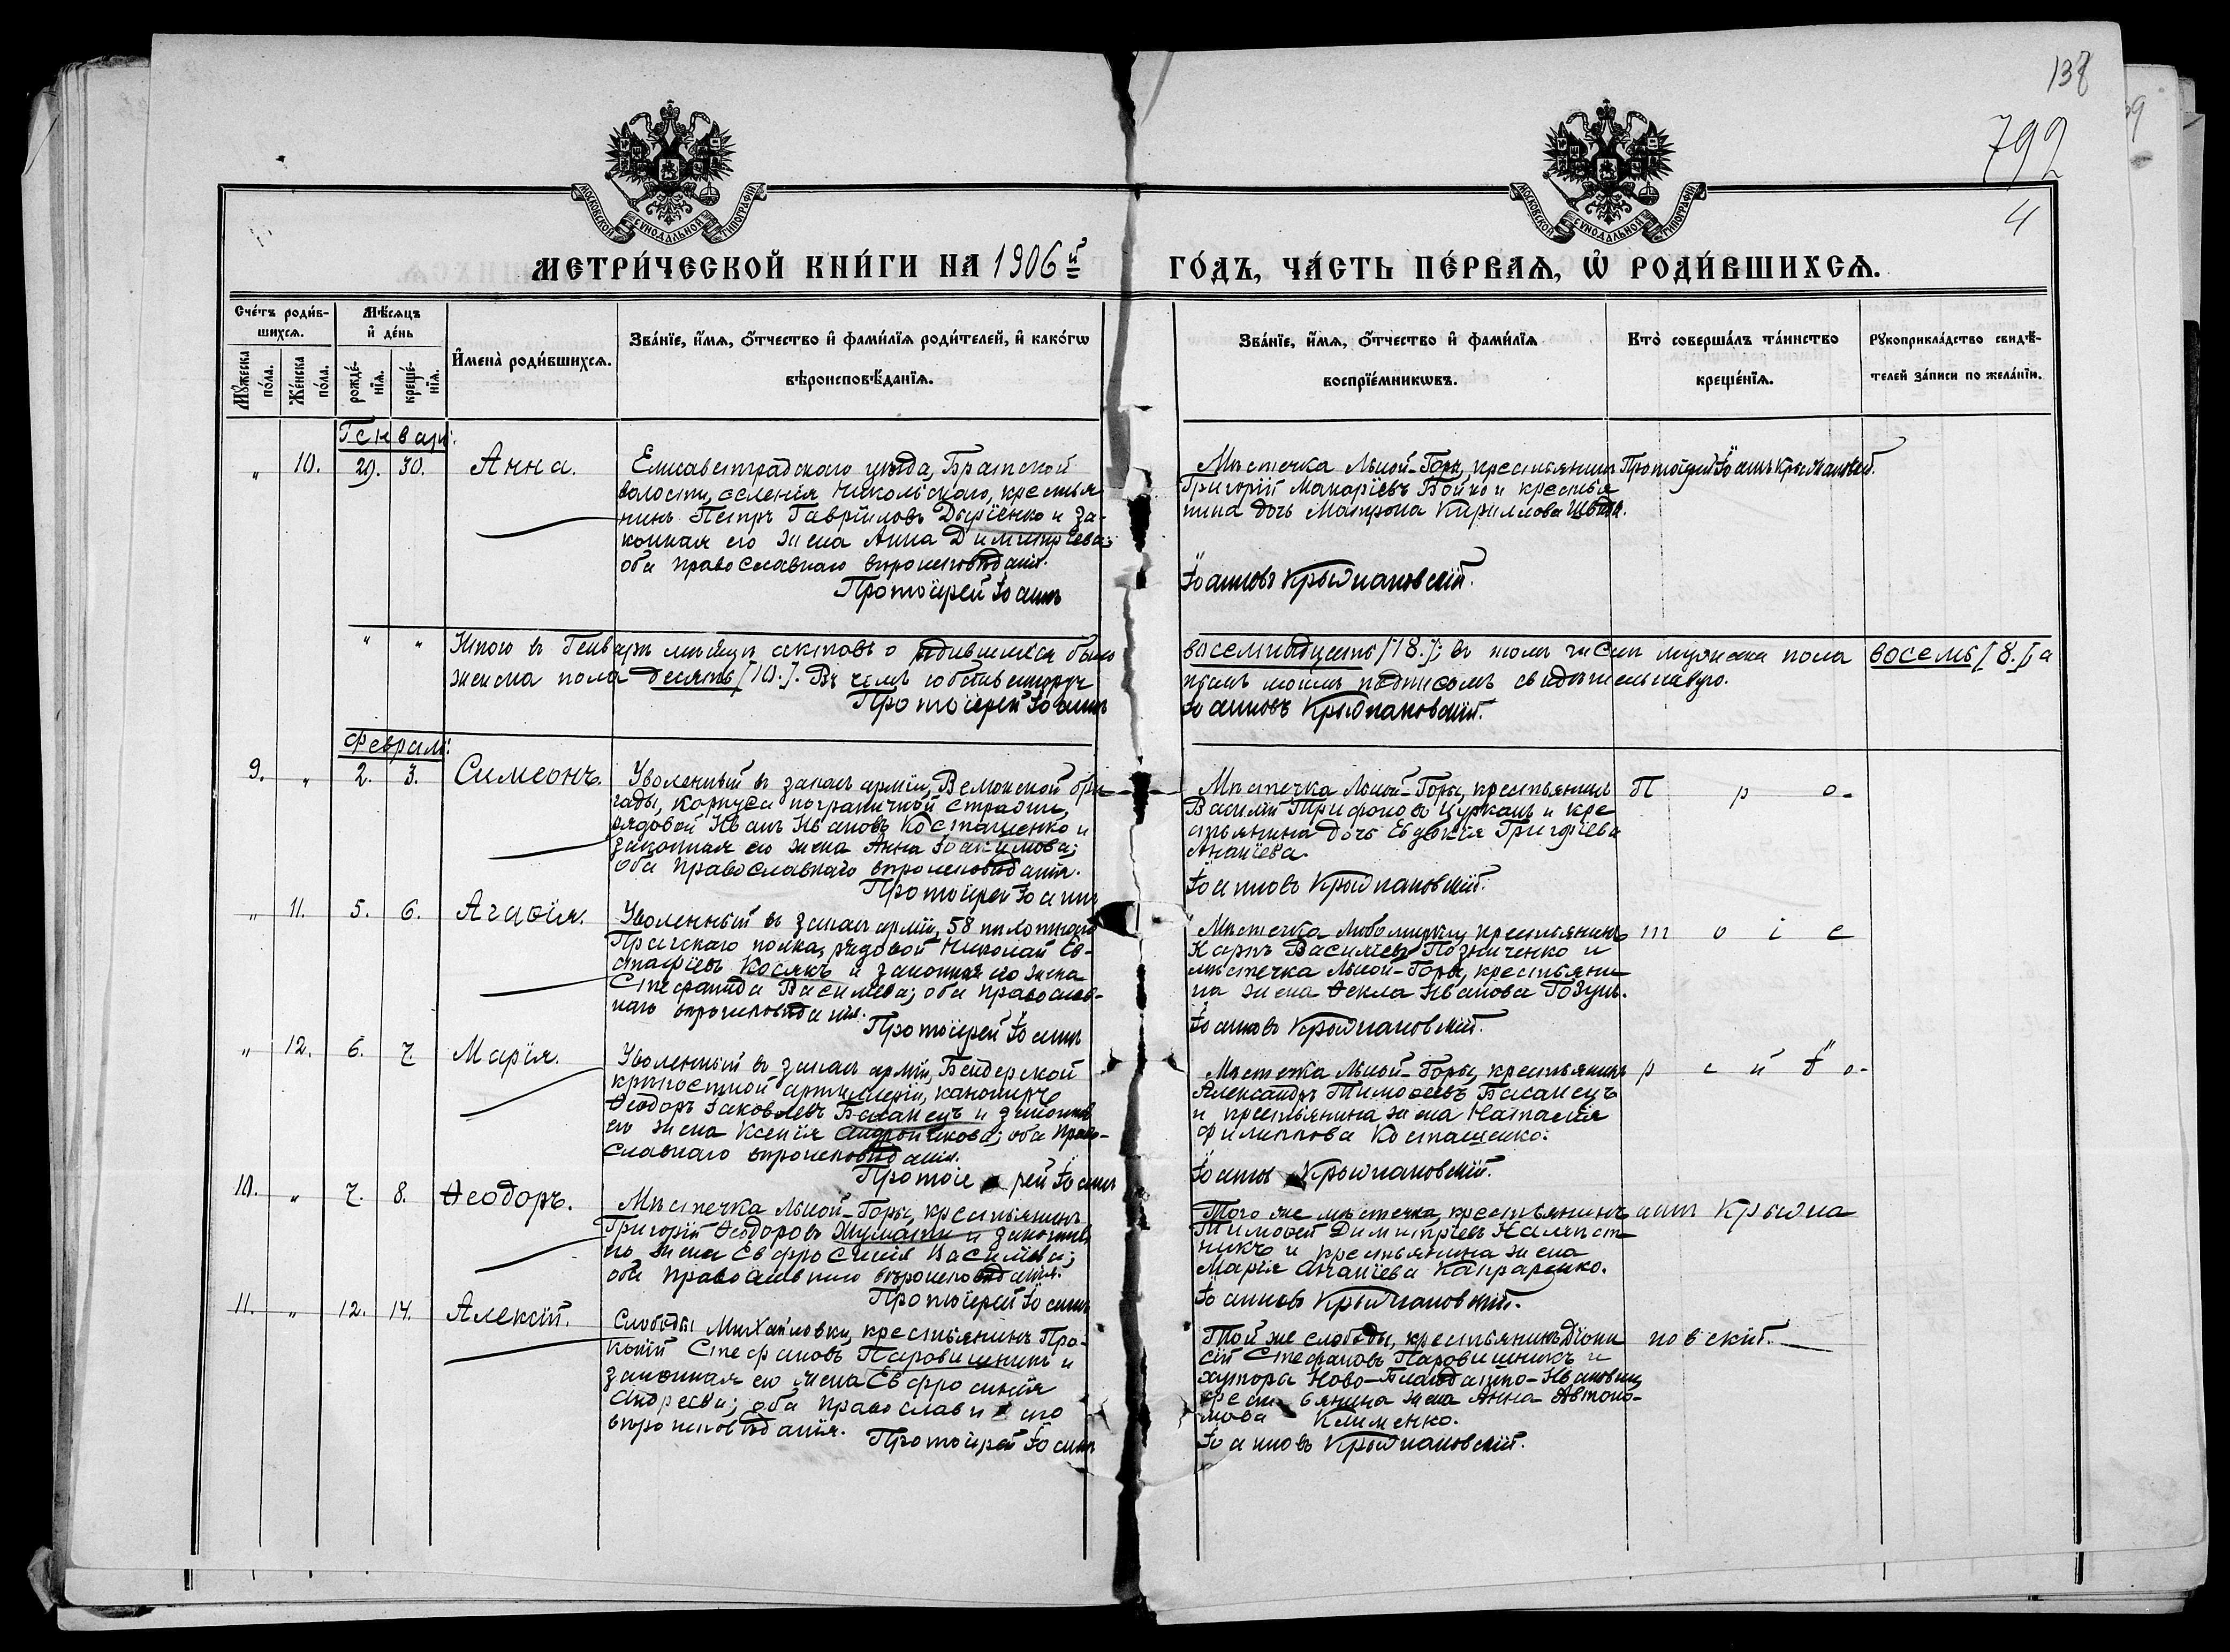 138
792
4
МОСКОВСКОЙ СУНОДАЛЬНОЙ ТИПОГРАФІИ
МОСКОВСКОЙ СУНОДАЛЬНОЙ ТИПОГРАФІИ
МЕТРИ́ЧЕСКОЙ КНИ́ГИ НА 1906й ГО́ДЪ, ЧА́СТЬ ПЕ́РВАѦ, Ѡ҆ РОДИ́ВШИХСѦ.
Сче́тъ роди́в-
шихсѧ.
Мꙋ́жеска по́ла.
Же́нска по́ла.
Мѣ́сѧцъ
и҆ де́нь
рожде́-
нїѧ.
креще́-
нїѧ.
И҆мена̀ роди́вшихсѧ.
Зва́нїе, и҆́мѧ, ѻ҆́тчество и҆ фами́лїѧ роди́телей, и҆ како́гѡ
вѣроисповѣ́данїѧ.
Зва́нїе, и҆́мѧ, ѻ҆́тчество и҆ фами́лїѧ
воспрїе́мникѡвъ.
Кто̀ соверша́лъ та́инство
креще́нїѧ.
Рꙋкоприкла́дство свидѣ́-
телей за́писи по жела́нїю.
Генварь:
„ 10. 29. 30. Анна.
Елисаветградскаго уѣзда, Братской
волости, селенія Никольскаго, крестья-
нинъ Петръ Гавріиловъ и за-
конная его жена Анна Димитріева;
оба православнаго вѣроисповѣданія.
Протоіерей Іоаннъ
Мѣстечка Лысой-Горы, крестьянинъ
Григорій Макаріевъ Бойко и крестья
нина дочь Матрона Кириллова Швед
Іоанновъ Крыжановскій.
Протоіерей Іоаннъ Крыжановскій.
„ „ Итого въ Генварѣ мѣсяцѣ актовъ о родившихся было восемнадцать [18.]; въ томъ числѣ мужеска пола восемь [8.], а
женска пола десять [10.]. Въ чемъ собственноруч
нымъ моимъ подписомъ свидѣтельствую.
Протоіерей Іоаннъ
Іоанновъ Крыжановскій.
Февраль:
9. „ 2. 3. Симеонъ.
Уволенный въ запасъ арміи, бри
гады, корпуса пограничной стражи,
рядовой Иванъ Ивановъ Косташенко и
законная его жена Анна Іоакимова;
оба православнаго вѣроисповѣданія.
Протоіерей Іоаннъ
Мѣстечка Лысой-Горы, крестьянинъ
Василій Трифоновъ Цурканъ и кре
стьянина дочь Евдокія Григоріева
Ананіева.
Іоанновъ Крыжановскій.
П р о-
„ 11. 5. 6. Агаѳія.
Уволенный въ запасъ арміи, 58 пѣхотнаго
Прагскаго полка, рядовой Николай Ев-
стафіевъ Косякъ и законная его жена
Стефанида Василіева; оба православ-
наго вѣроисповѣданія.
Протоіерей Іоаннъ
Мѣстечка крестьянинъ
Карпъ Василіевъ Позниченко и
мѣстечка Лысой-Горы, крестьяни
на жена Ѳекла Иванова Гозунъ.
Іоанновъ Крыжановскій.
т о і е
„ 12. 6. 7. Марія.
Уволенный въ запасъ арміи, Бендерской
крѣпостной артиллеріи, канониръ
Ѳеодоръ Іаковлевъ Басанецъ и законная
его жена Ксенія Андроникова; оба право-
славнаго вѣроисповѣданія.
Протоіе рей Іоаннъ
Мѣстечка Лысой-Горы, крестьянинъ
Александръ Тимоѳеевъ Басанецъ
и крестьянина жена Наталія
Филиппова Косташенко.
Іоанновъ Крыжановскій.
р е й І о-
10. „ 7. 8. Ѳеодоръ.
Мѣстечка Лысой-Горы, крестьянинъ
Григорій Ѳеодоровъ и законная
его жена Евфросинія Василіева;
оба православнаго вѣроисповѣданія.
Протоіерей Іоаннъ
Того же мѣстечка, крестьянинъ
Тимоѳей Димитріевъ
и крестьянина жена
Марія Ананіева Капраренко.
Іоанновъ Крыжановскій.
аннъ Крыжа
11. „ 12. 14. Алексій.
Слободы Михайловки, крестьянинъ Про-
копій Стефановъ Паровишникъ и
законная его жена Евфросинія
Андреева; оба православнаго
вѣроисповѣданія.
Протоіерей Іоаннъ
Той же слободы, крестьянинъ Діони
сій Стефановъ Паровишникъ и
хутора Ново-
крестьянина жена Анна Автоно-
мова Клименко.
Іоанновъ Крыжановскій.
новскій.